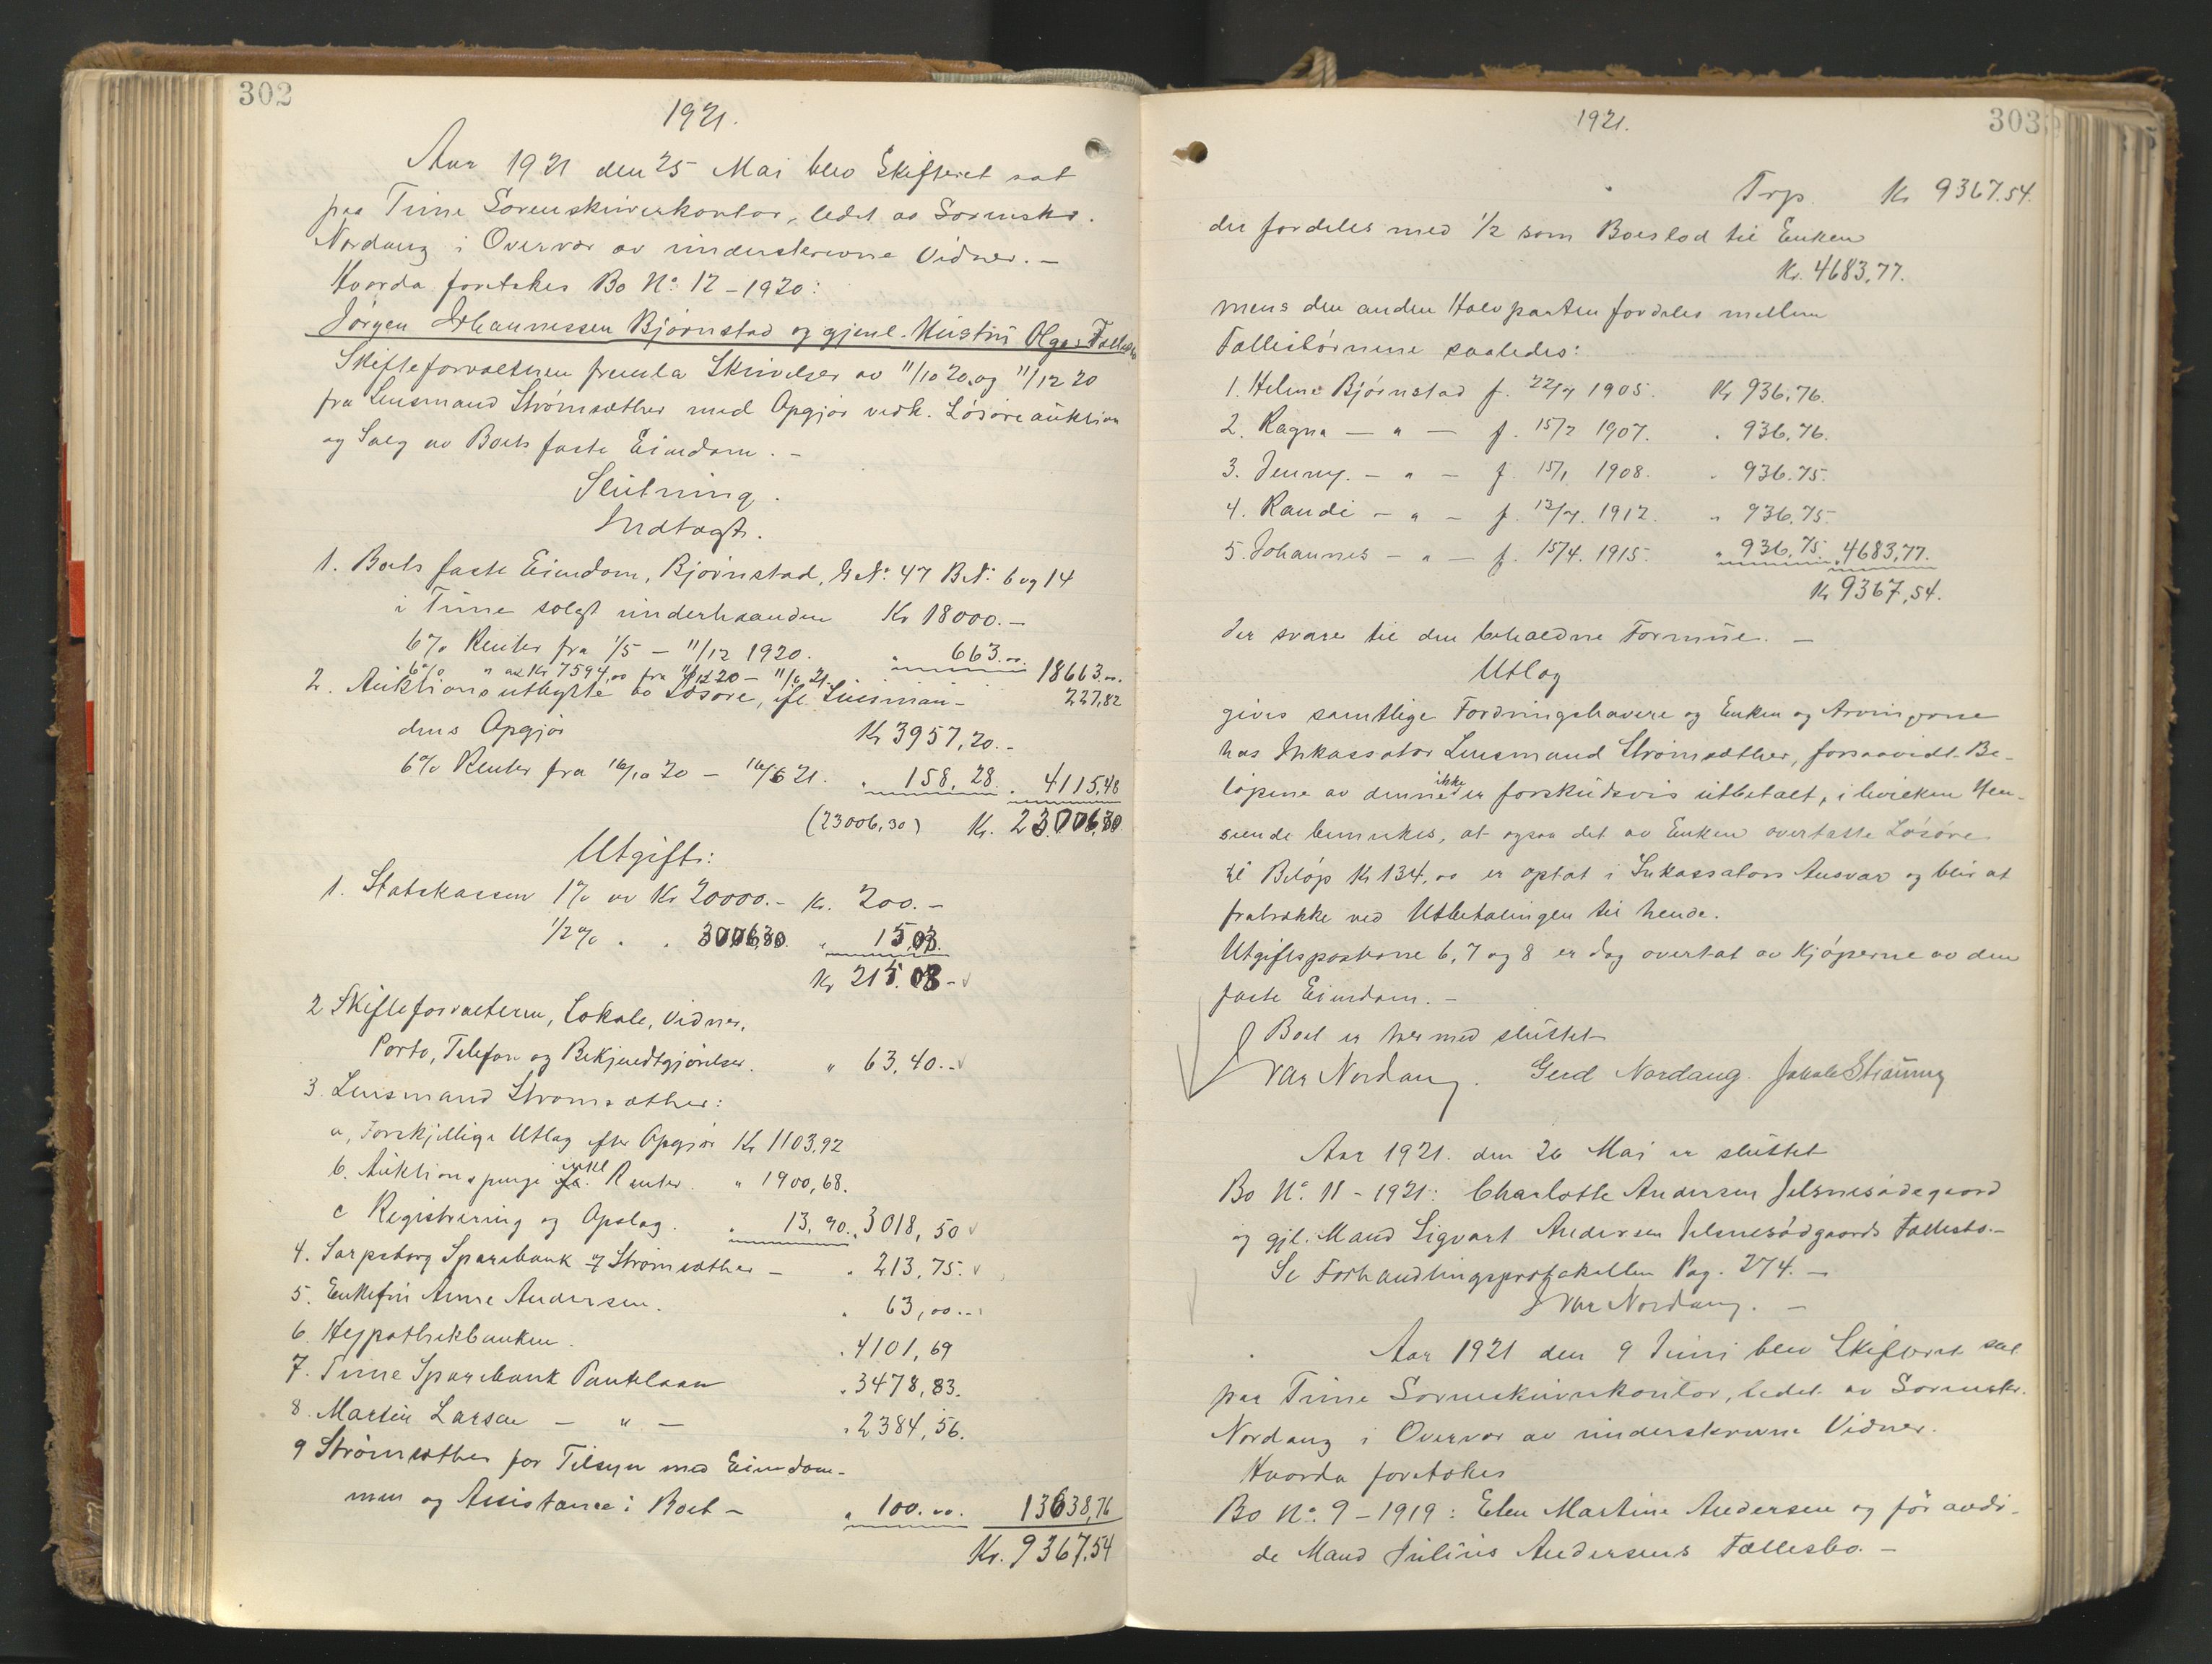 302
1921.
Aar 1921 den 25 Mai blev Skifteret sat
paa Tune Sorenskriverkontor, ledet av Sorenskr.
Nordang i Overvær av underskrevne Vidner. –
Hvorda foretokes Bo No: 12 – 1920:
Jörgen Johannessen Bjørnstad og gjenl. Hustru Olgas Fællesbo
Skifteforvalteren fremla Skrivelser av 11/10 20 og 11/12 20
fra Lensmand Strømsæther med Opgjør vedk. Løsøreauktion
og Salg av Boets faste Eiendom. –
Slutning.
Indtægt.
1. Boets faste Eiendom, Bjørnstad, G.No: 47 B.No: 6 og 14
i Tune solgt underhaanden Kr 18000.–
6% Renter fra 1/5 – 11/12 1920. " 663.00 18663.00.
6% " av Kr 7594,00 fra 11/12 20 – 11/6 21. 227,82
2. Auktionsutbytte av Løsøre, ifl. Lensman-
dens Opgjør Kr 3957,20.–
6% Renter fra 16/10 20 – 16/6 21. " 158,28. " 4115,48
(23006,30) Kr. 23006,30
Utgift:
1. Statskassen 1% av Kr 20000.– Kr. 200.–
1/2% " " 3006,30. " 15,03.
Kr 215.03 –
2 Skifteforvalteren, Lokale, Vidner,
Porto, Telefon og Bekjendtgjørelser. " 63,40.–
3. Lensmand Strømsæther:
a, Forskjellige Utlæg efter Opgjør Kr 1103,92
b. Auktionspenge inkl Renter. " 1900,68.
c Registrering og Opslag. " 13.90. " 3018,50
4. Sarpsborg Sparebank v/ Strømsæther – " 213,75.
5. Enkefru Anne Andersen. " 63,00.–
6. Hypothekbanken. " 4101,69
7. Tune Sparebank Pantelaan " 3478,83.
8. Martin Larsen – " – " 2384,56.
9 Strømsæther for Tilsyn med Eiendom-
men og Assistance i Boet – " 100.00. 13638,76
Kr. 9367,54
303
1921.
Trp. Kr 9367.54.
der fordeles med 1/2 som Boeslod til Enken
Kr. 4683,77.
mens den anden Halvparten fordeles mellem
Fællesbørnene saaledes:
1. Helene Bjørnstad f. 22/4 1905. Kr 936,76.
2. Ragna – " – f. 15/2 1907. " 936,76.
3. Jenny. – " – f. 15/1 1908. " 936.75.
4. Randi – " – f. 12/4. 1912. " 936,75.
5. Johannes – " – f. 15/4. 1915. " 936,75. " 4683,77.
Kr 9367,54.
der svarer til den beholdne Formue. –
Utlæg
gives samtlige Fordringshavere og Enken og Arvingerne
hos Inkassator Lensmand Strømsæther, forsaavidt Be-
løpene av denne ikke er forskudsvis utbetalt, i hvilken Hen-
seende bemerkes, at ogsaa det av Enken overtatte Løsøre
til Beløp Kr 134,00 er optat i Inkassators Ansvar og blir at
fratrække ved Utbetalingen til hende.
Utgiftsposterne 6, 7 og 8 er dog overtat av Kjøperne av den
faste Eiendom. –
Boet er hermed sluttet
Ivar Nordang. Gerd Nordang.
Aar 1921. den 26 Mai er sluttet
Bo No: 11 – 1921: Charlotte Andersen Jelsnesødegaard
og gjl. Mand Sigvart Andersen Jelsnesødgaards Fællesbo. –
Se Forhandlingsprotokollen Pag. 274. –
Ivar Nordang. –
Aar 1921 den 9 Juni blev Skifteret sat
paa Tune Sorenskriverkontor, ledet av Sorenskr.
Nordang i Overvær av underskrevne Vidner.
Hvorda foretokes
Bo No: 9 – 1919: Elen Martine Andersen og før avdø-
de Mand Julius Andersens Fællesbo. –